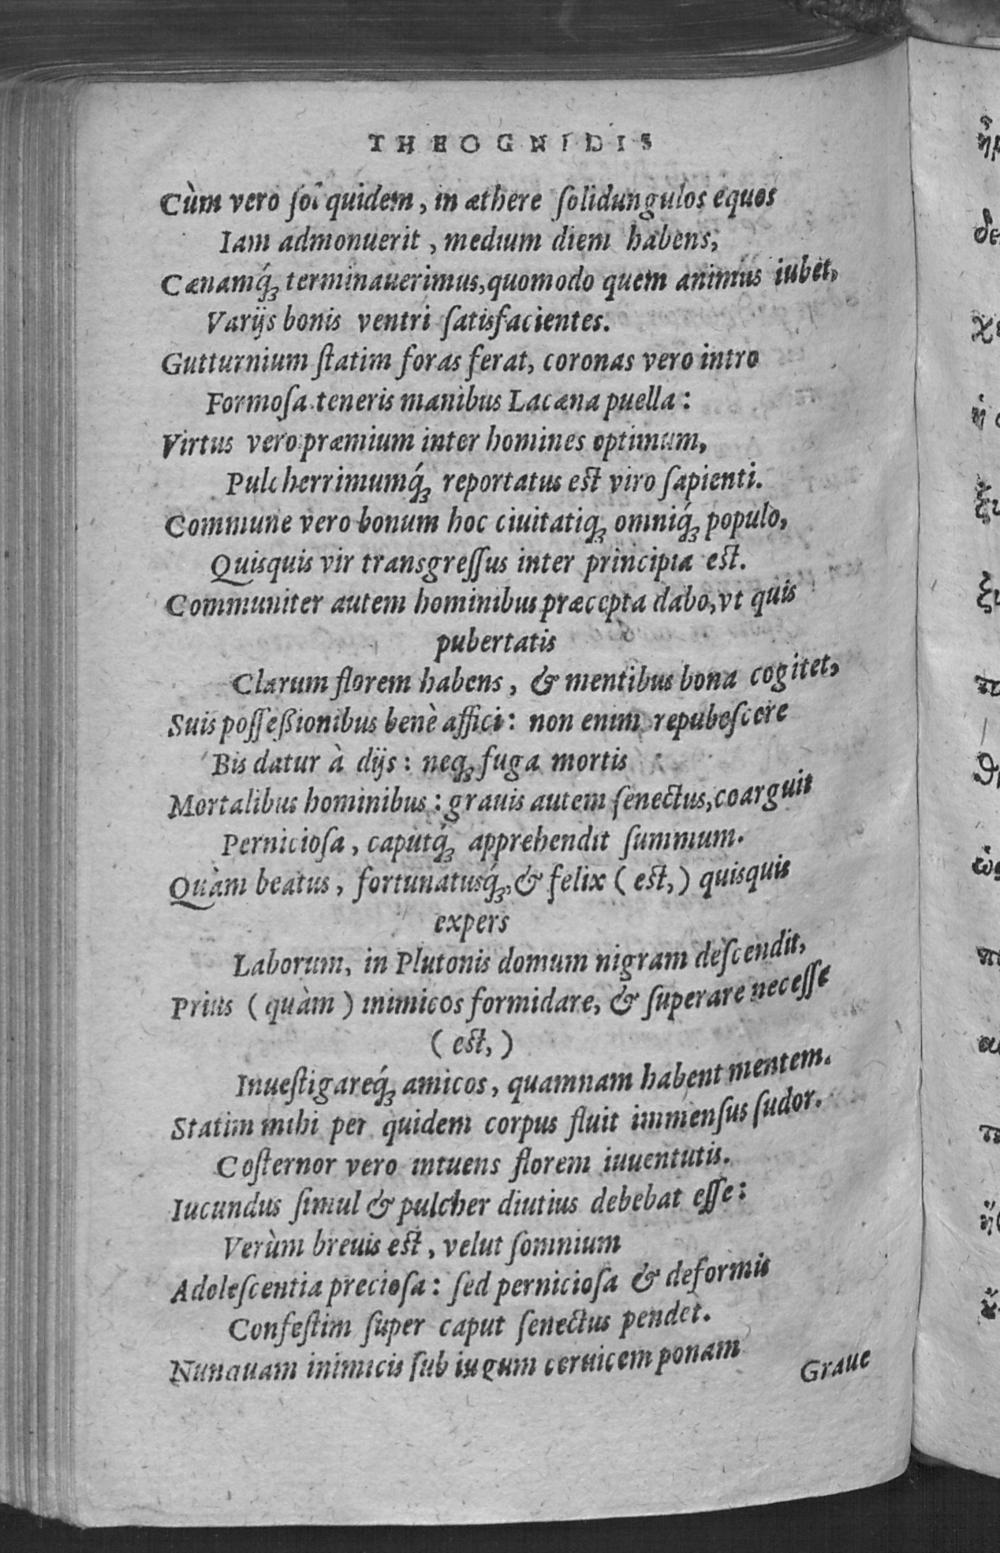 THEOGNIDIS
Cùm vero sol quidem, in æthere ſolidungulos equos
Iam admonuerit, medium diem habens,
Cænamq́ꝫ terminauerimus, quomodo quem animus iubet,
Varijs bonis ventri ſatisfacientes.
Gutturnium ſtatim foras ferat, coronas vero intro
Formoſa teneris manibus Lacæna puella:
Virtus vero præmium inter homines optimum,
Pulcherrimumq́ꝫ reportatus eſt viro ſapienti.
Commune vero bonum hoc ciuitatiqꝫ omniq́ꝫ populo,
Quisquis vir transgreſſus inter principia eſt.
Communiter autem hominibus præcepta dabo, vt quis
pubertatis
Clarum florem habens, & mentibus bona cogitet,
Suis poſſeßionibus benè affici: non enim repubeſcere
Bis datur à dijs: neqꝫ fuga mortis
Mortalibus hominibus: grauis autem ſenectus, coarguit
Pernicioſa, caputq́ꝫ apprehendit ſummum.
Quàm beatus, fortunatusq́ꝫ, & felix (eſt,) quisquis
expers
Laborum, in Plutonis domum nigram deſcendit,
Priùs (quàm) inimicos formidare, & ſuperare neceſſe
(eſt,)
Inueſtigareq́ꝫ amicos, quamnam habent mentem.
Statim mihi per quidem corpus fluit immenſus ſudor.
Coſternor vero intuens florem iuuentutis.
Iucundus ſimul & pulcher diutius debebat eſſe:
Verùm breuis eſt, velut ſomnium
Adoleſcentia precioſa: ſed pernicioſa & deformis
Confeſtim ſuper caput ſenectus pendet.
Nunquam inimicis ſub iugum ceruicem ponam
Graue